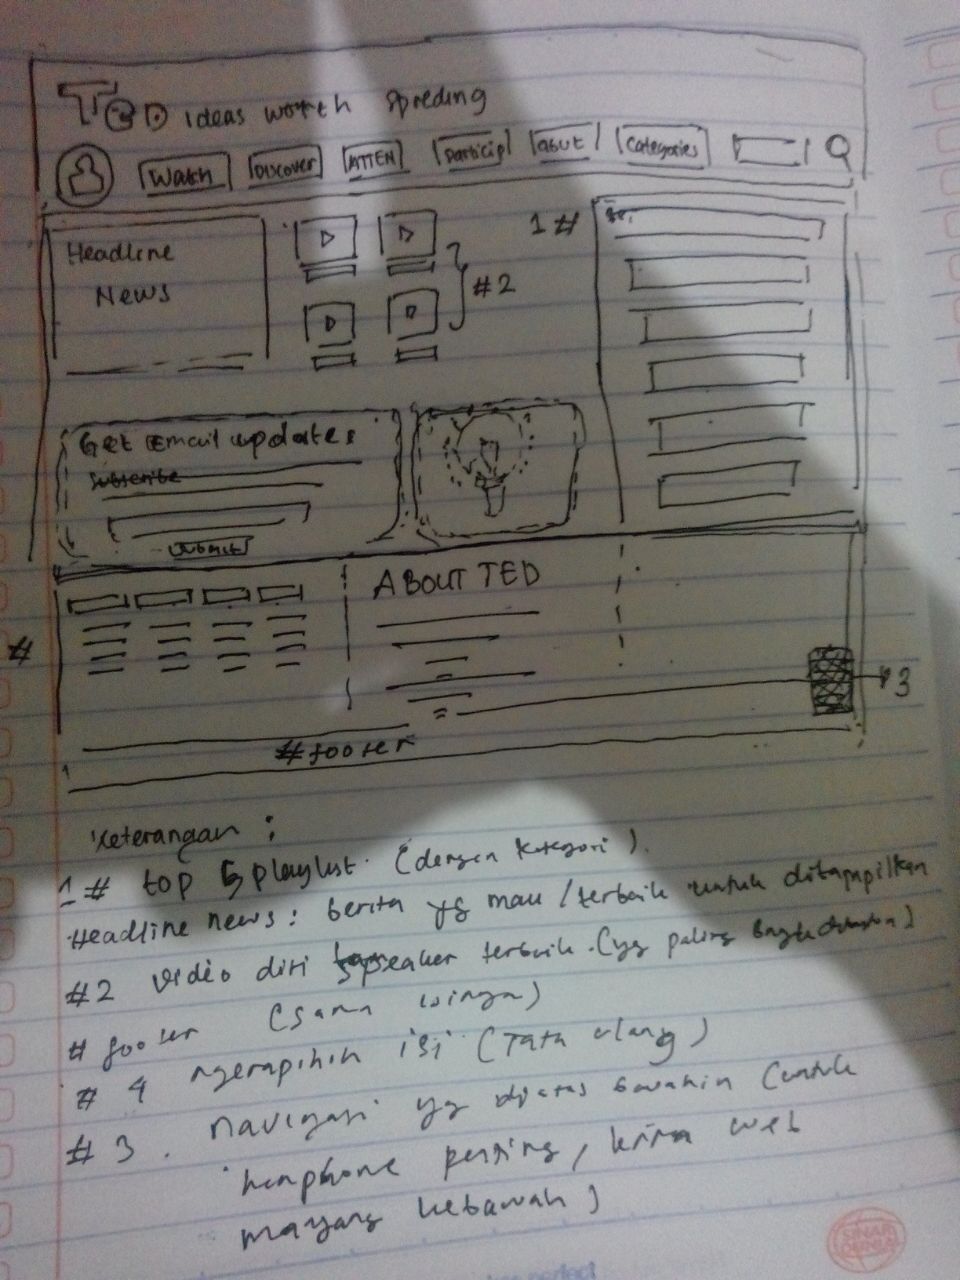 TED ideas worth spreding
Watch Discover ATTEN particip about Categories
Headline
News
1 #
#2
Get Email updates
Subscribe
submit
ABOUT TED
#
3
#footer
Keterangan :
1 # top 5 playlist. (dengan kategori).
Headline news : berita yg mau / terbaik untuk
#2 video diri speaker terbaik. (yg paling
# footer (sama isinya)
# 4 ngerapihin isi (Tata ulang)
# 3. navigasi yg diatas bawahin (untuk
penting, web
kebawah)
SINAR
DUNIA